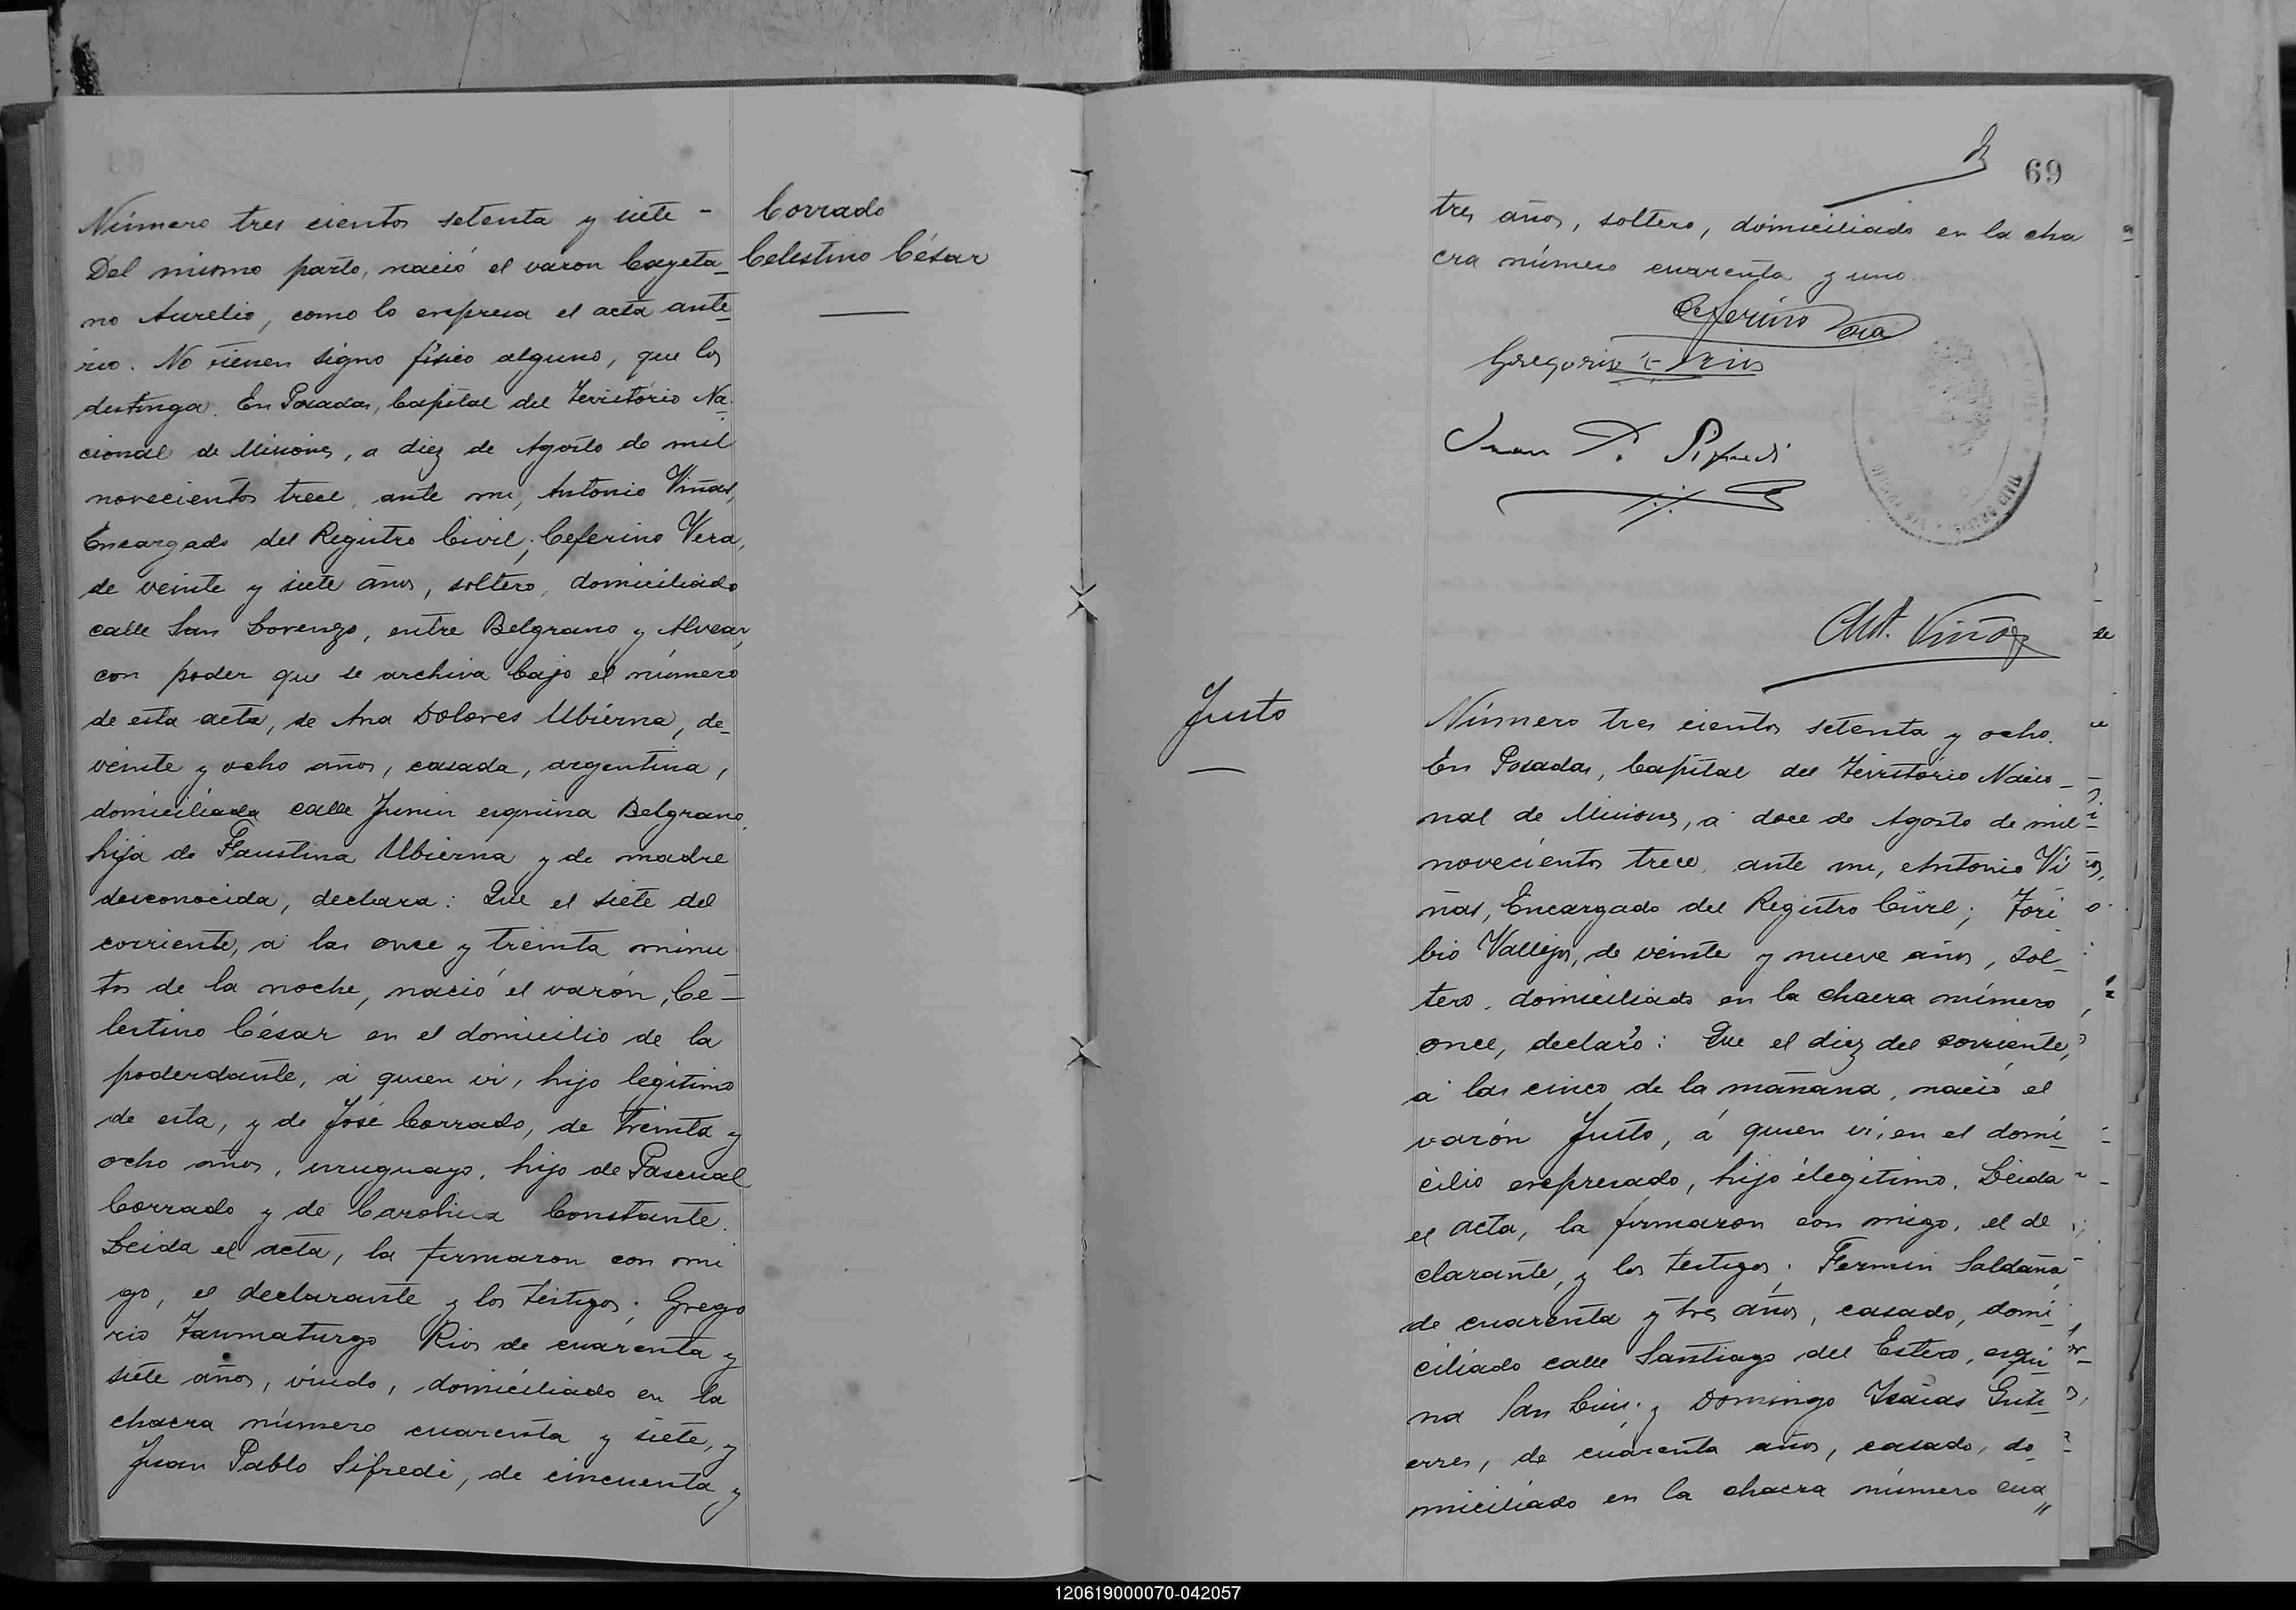 Número tres cientos setenta y siete -
Del mismo parto, nació el varon Cayeta_
no Aurelio, como lo expresa el acta ante_
rior. No tienen signo físico alguno, que los
destinga. En Posadas, Capital del Territorio Na_
cional de Misiones, a diez de Agosto de mil
novecientos trece, ante mi, Antonio Viñas,
Encargado del Registro Civil; Ceferino Vera,
de veinte y siete años, soltero, domiciliado
calle San Lorenzo, entre Belgrano y Alvear,
con poder que se archiva bajo el número
de esta acta, de Ana Dolores Ubierna, de_
veinte y ocho años, casada, argentina,
domiciliada calle Junin esquina Belgrano,
hija de Faustina Ubierna y de madre
desconocida, declara: Que el siete del
corriente, a las once y treinta minu
tos de la noche, nació el varón, Ce_
lestino César en el domicilio de la
poderdante, á quien ví, hijo legítimo
de esta, y de José Corrado, de treinta y
ocho años, uruguayo, hijo de Pascual
Corrado y de Carolina Constante.
Leida el acta, la firmaron con mi
go, el declarante y los testigos; Grego
rio Taumaturgo Rios de cuarenta y
siete años, viudo, domiciliado en la
chacra número cuarenta y siete, y
Juan Pablo Sifredi, de cincuenta y
Corrado
Celestino César
69
tres años, soltero, domiciliado en la cha
cra número cuarenta y uno.
Ceferino Vera
Gregorio T. Rios
Juan P. Sifredi
Ant. Viñas
Justo
Número tres cientos setenta y ocho.
En Posadas, Capital del Territorio Nacio_
nal de Misiones, á doce de Agosto de mil
novecientos trece, ante mi, Antonio Vi
ñas, Encargado del Registro Civil; Tori
bio Vallejos, de veinte y nueve años, sol_
tero, domiciliado en la chacra número
once, declaró: Que el diez del corriente,
a las cinco de la mañana, nació el
varón Justo, á quien ví, en el domi_
cilio expresado, hijo ilegítimo. Leida
el acta, la firmaron con migo, el de
clarante, y los testigos; Fermin Saldaña,
de cuarenta y tres años, casado, domi_
ciliado calle Santiago del Estero, esqui
na San Luis; y Domingo Isaias Guti_
erres, de cuarenta años, casado, do_
miciliado en la chacra número cua„
120619000070-042057